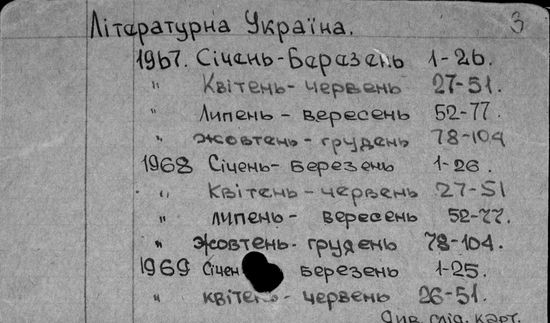 Літературна Україна. 3
1967. Січень-Баразень 1-26.
" Квітень-червень 27-51.
" Липень-вересень 52-77.
" жовтень-грудень 78-104
1968 Січень-березень 1-26.
" квітень-червень 27-51
" липень- вересень 52-77.
" жовтень-грудень 78-104.
1969 Січен березень 1-25.
" квітень-червень 26-51.
Див. слід. карт.